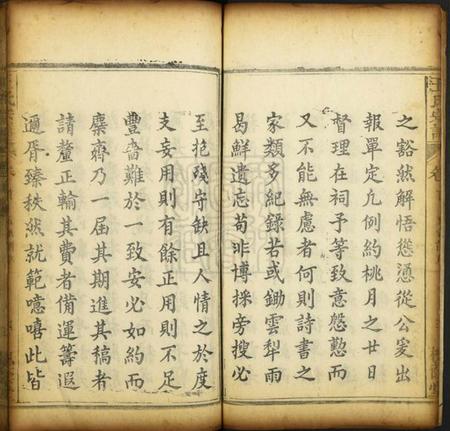 王氏宗譜
之豁然解悟慫慂從公爰出
報單定凢例約桃月之廿日
督理在祠予等致意慇懃而
又不能無慮者何則詩書之
家類多紀錄若或鋤雲犁雨
曷鮮遺忘苟非博採旁搜必
至抱殘守缺且人情之於度
支妄用則有餘正用則不足
豐嗇難於一致安必如約而
齊乃一屆其期進其稿者
請釐正輸其費者備運籌遐
邇胥臻秩然就範噫嘻此皆